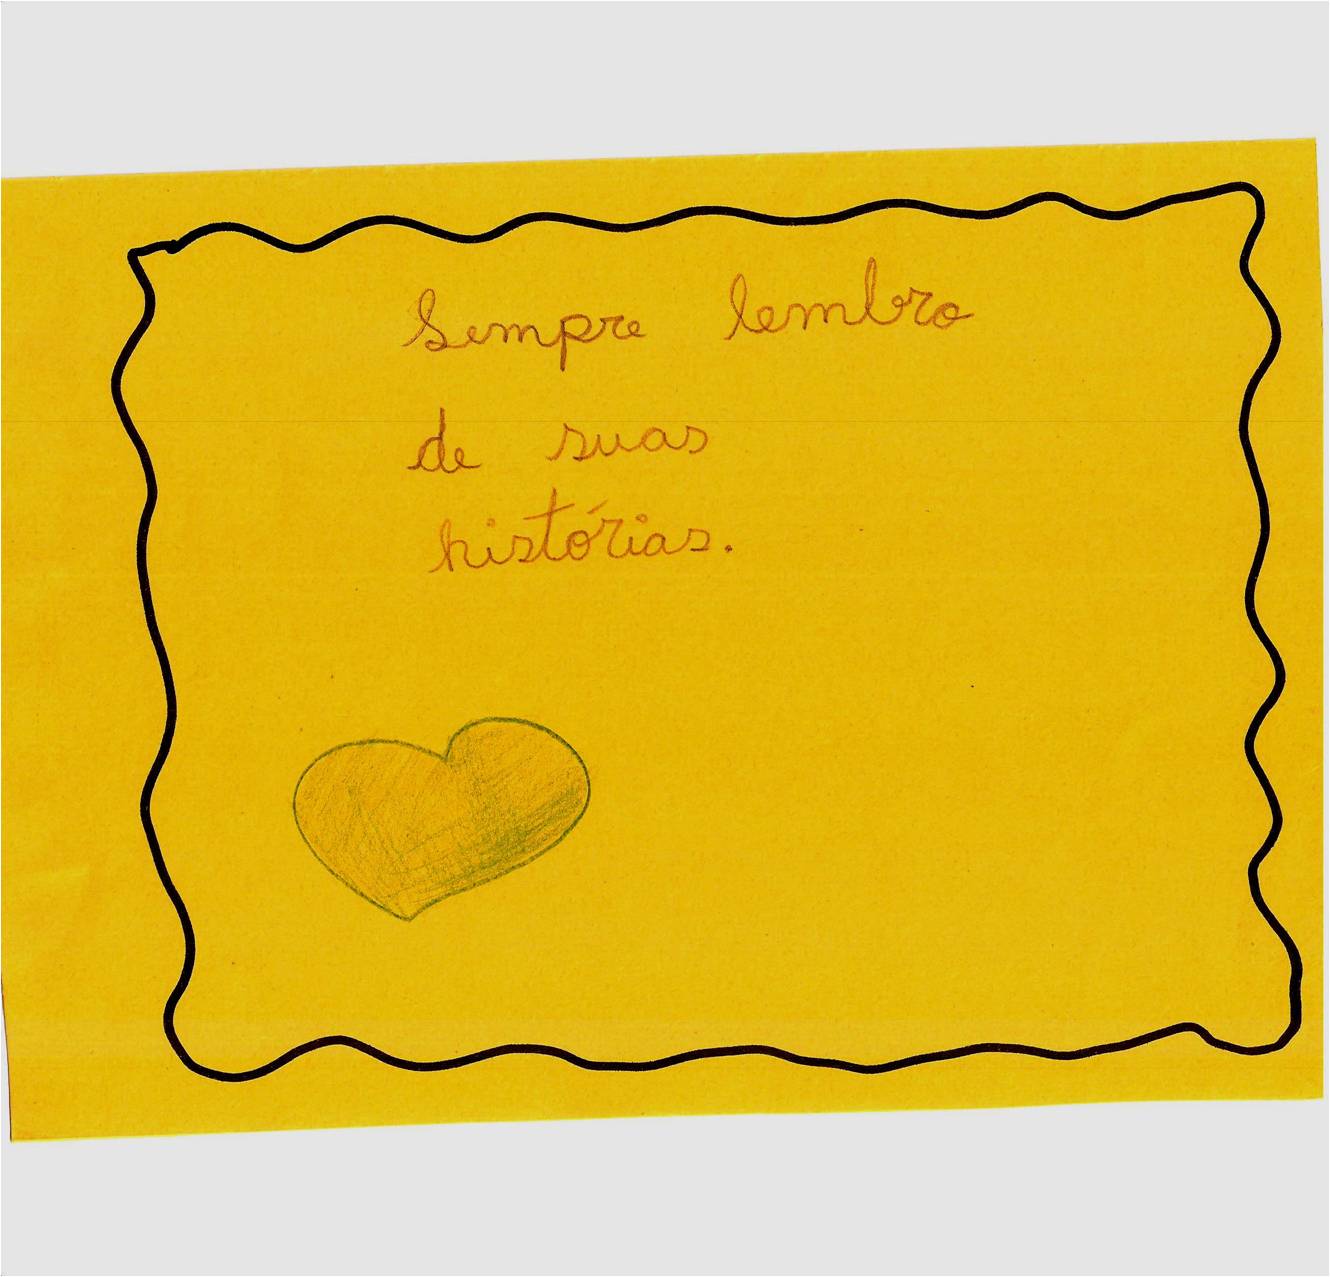 Sempre lembro
de suas
histórias.